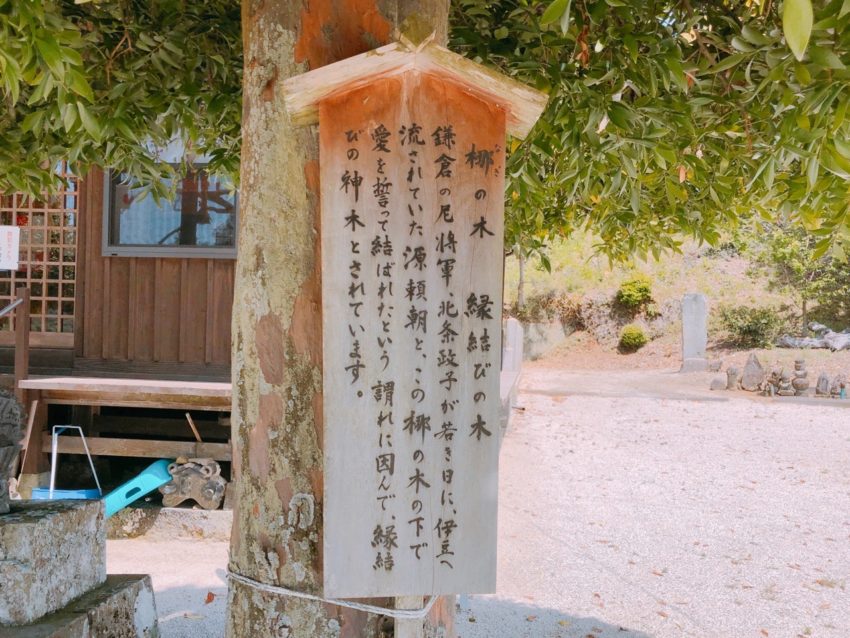 梛の木 縁結びの木
なぎ
鎌倉の尼将軍、北条政子が若き日に、伊豆へ
流されていた源頼朝と、この梛の木の下で
愛を誓って結ばれたという謂れに因んで、縁結
びの神木とされています。